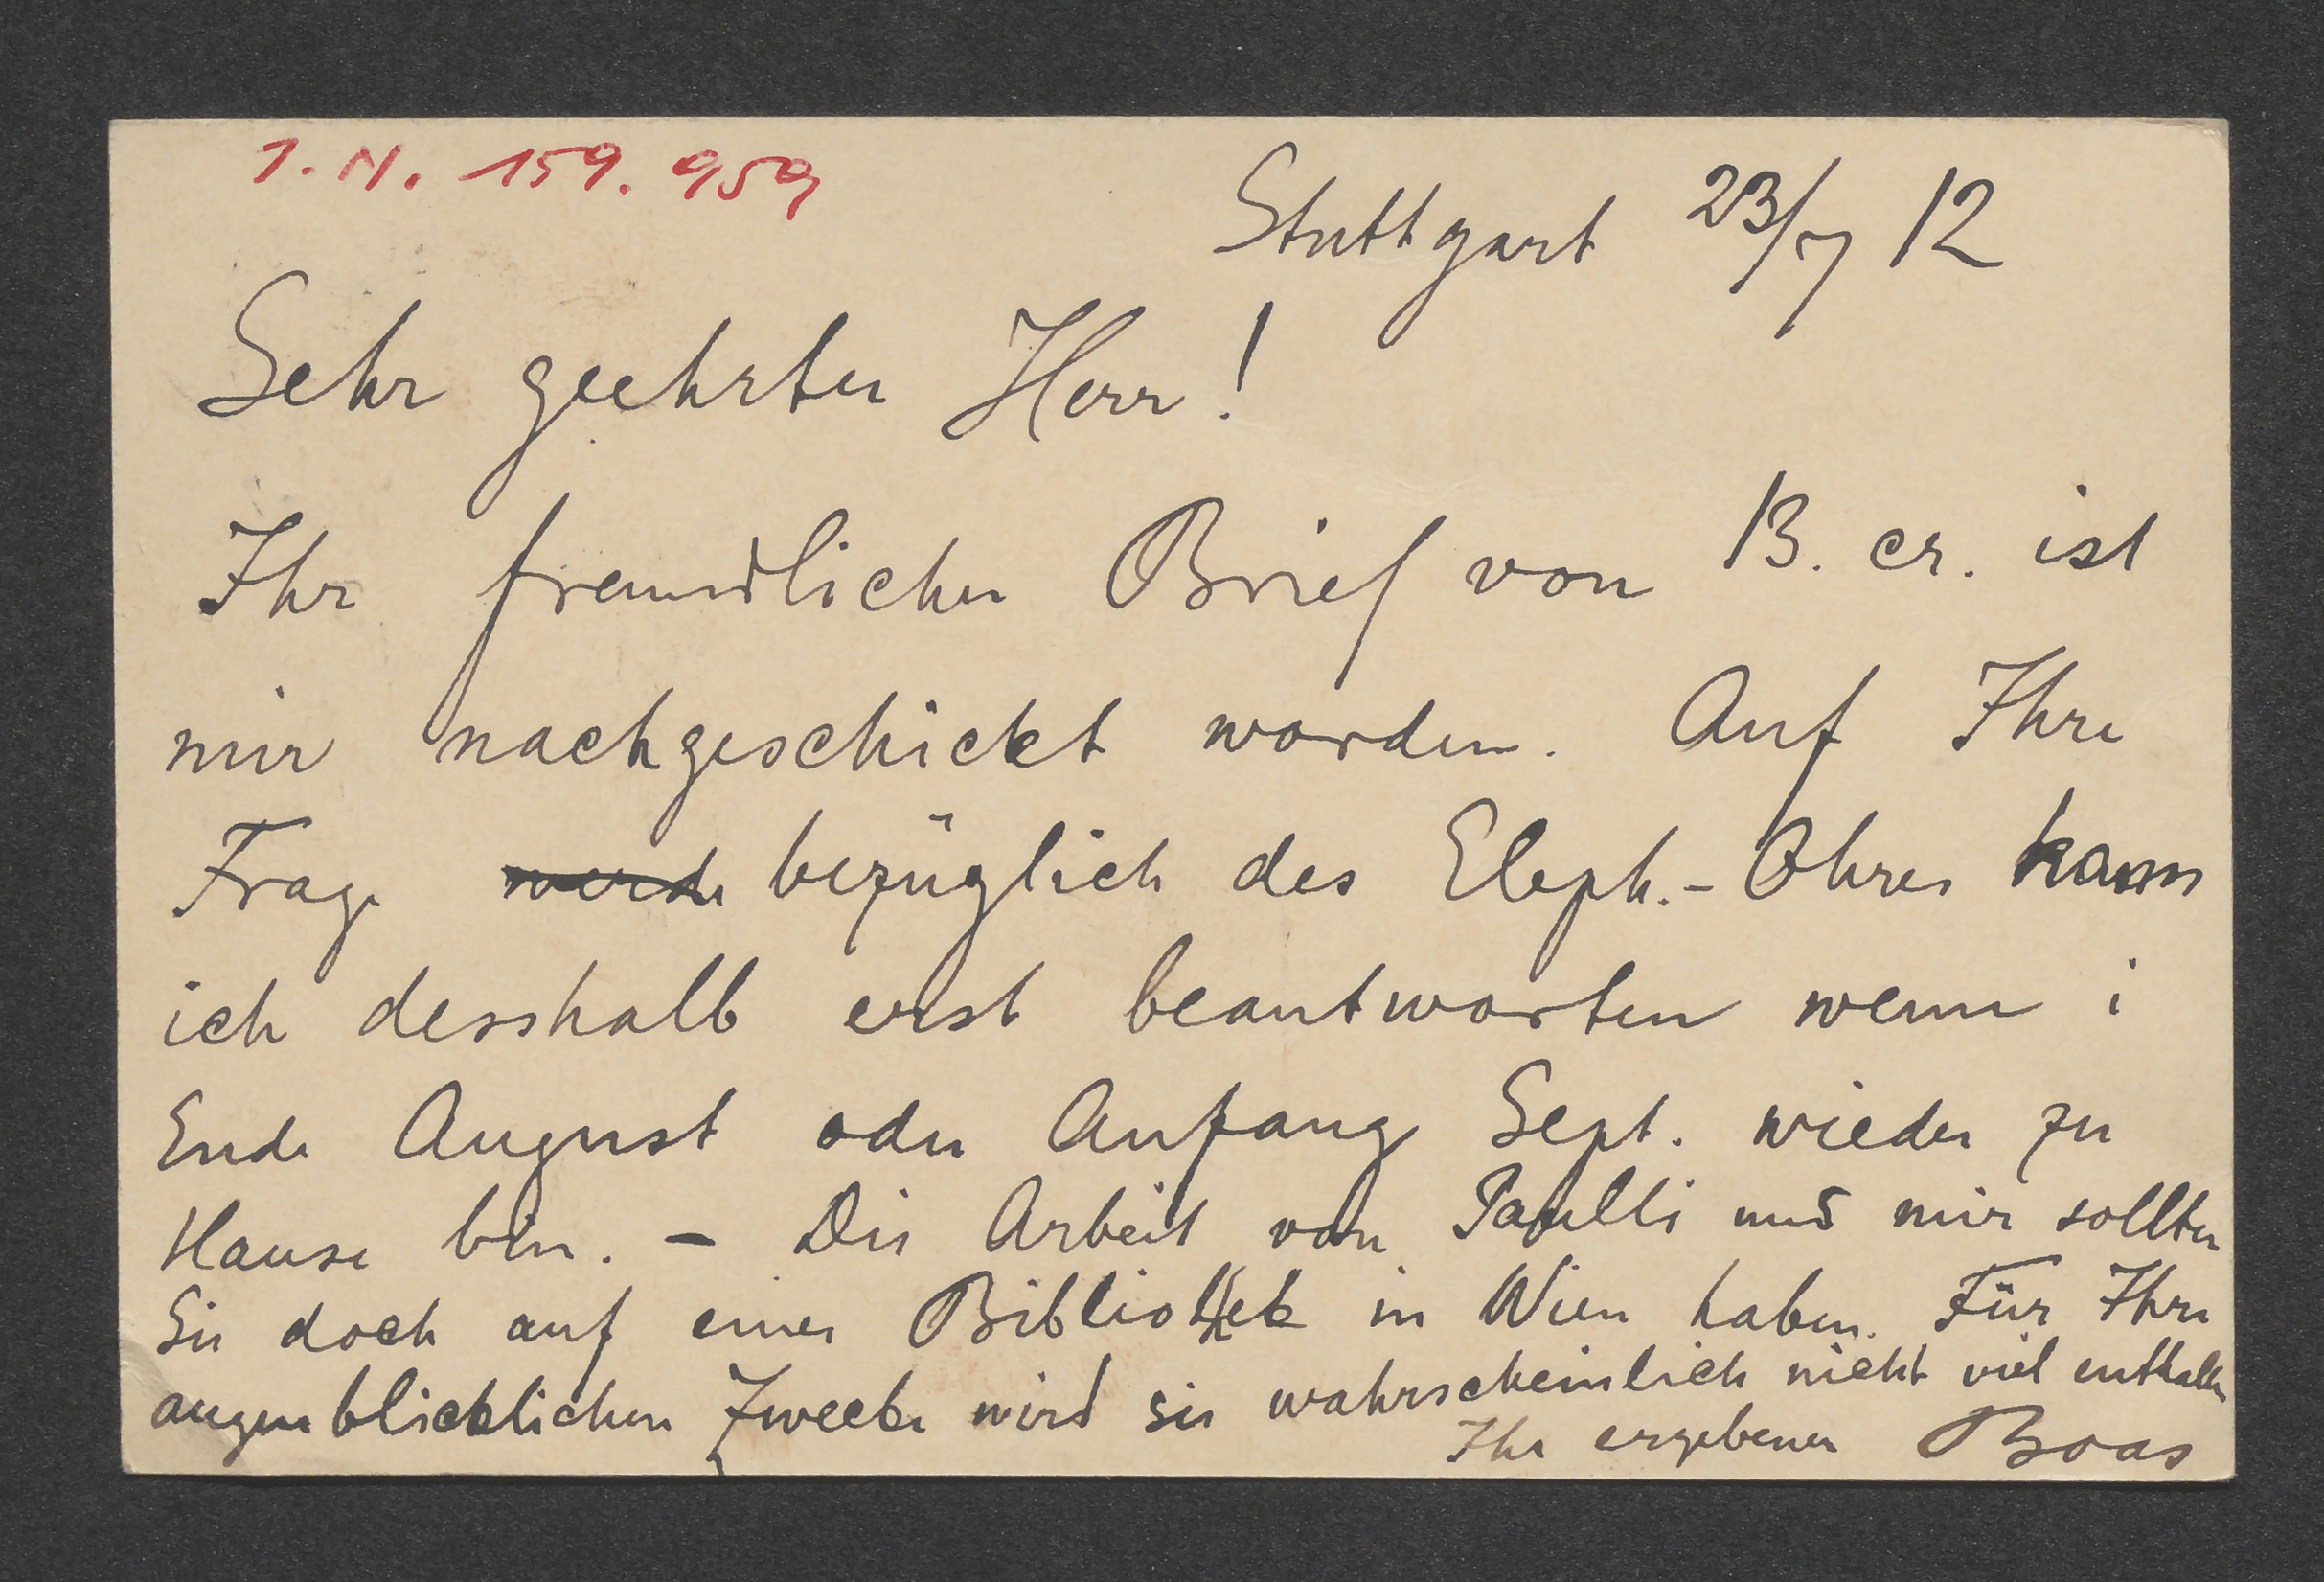 I. N. 159.959
Stuttgart 23/7 12
Sehr geehrter Herr!
Ihr freundlicher Brief von 13. cr. ist
mir nachgeschickt worden. Auf Ihre
Frage werde bezüglich des Eleph.-Ohres kann
ich desshalb erst beantworten wenn i
Ende August oder Anfang Sept. wieder zu
Hause bin. – Die Arbeit von Paulli und mir sollten
Sie doch auf einer Bibliothek in Wien haben. Für Ihre
augenblicklichen Zwecke wird sie wahrscheinlich nicht viel enthalten
Ihr ergebener Boas